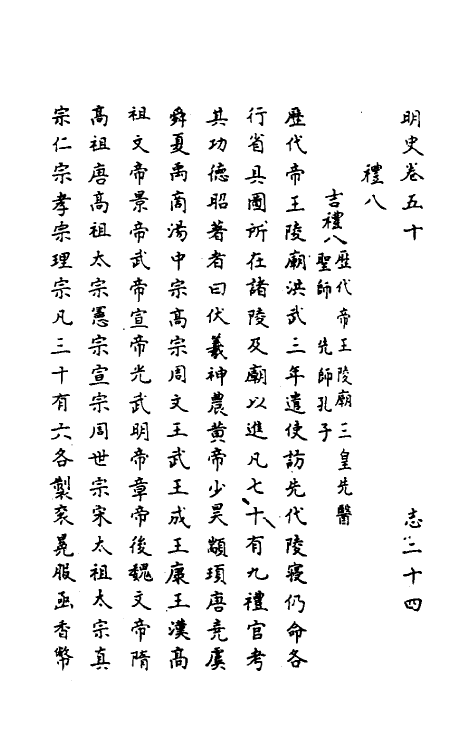 明史卷五十　志二十四
禮八
吉禮八歷代帝王陵廟　三皇　先醫
聖師　先師孔子
歷代帝王陵廟洪武三年遣使訪先代陵寢仍命各
行省具圖所在諸陵及廟以進凡七十有九禮官考
其功德昭著者曰伏羲神農黄帝少昊顓頊唐堯虞
舜夏禹商湯中宗高宗周文王武王成王康王漢高
祖文帝景帝武帝宣帝光武明帝章帝後魏文帝隋
高祖唐高祖太宗憲宗宣宗周世宗宋太祖太宗真
宗仁宗孝宗理宗凡三十有六各製衮冕服函香幣